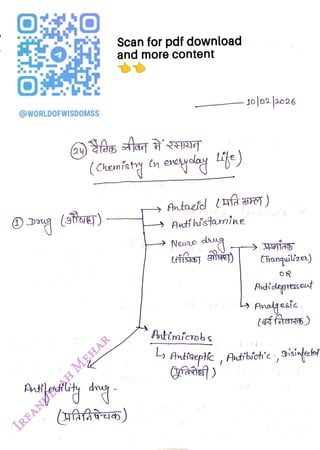 Scan for pdf download
and more content
👉👉
@WORLDOFWISDOMSS
10/02/2026
(24) दैनिक जीवन में रसायन
(Chemistry in everyday Life)
① Drug (औषधि)
→ Antacid (प्रति अम्ल)
→ Antihistamine
→ Neuro drug
(तंत्रिका औषधि)
→ प्रशांतक
(Tranquilizer)
OR
Antidepressent
→ Analgesic
(दर्द निवारक)
Antimicrobs
↳ Antiseptic, Antibiotic, Disinfected
(पूतिरोधी)
Antifertility drug -
(प्रतिनिषेचक)
MEHAR